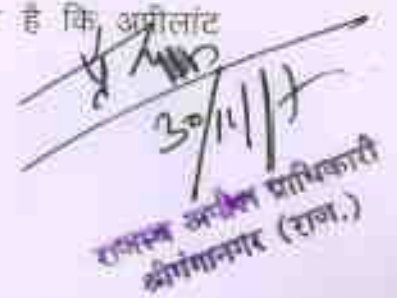 है कि अपीलांट
30/11/17
राजस्व अपील प्राधिकारी
श्रीगंगानगर (राज.)